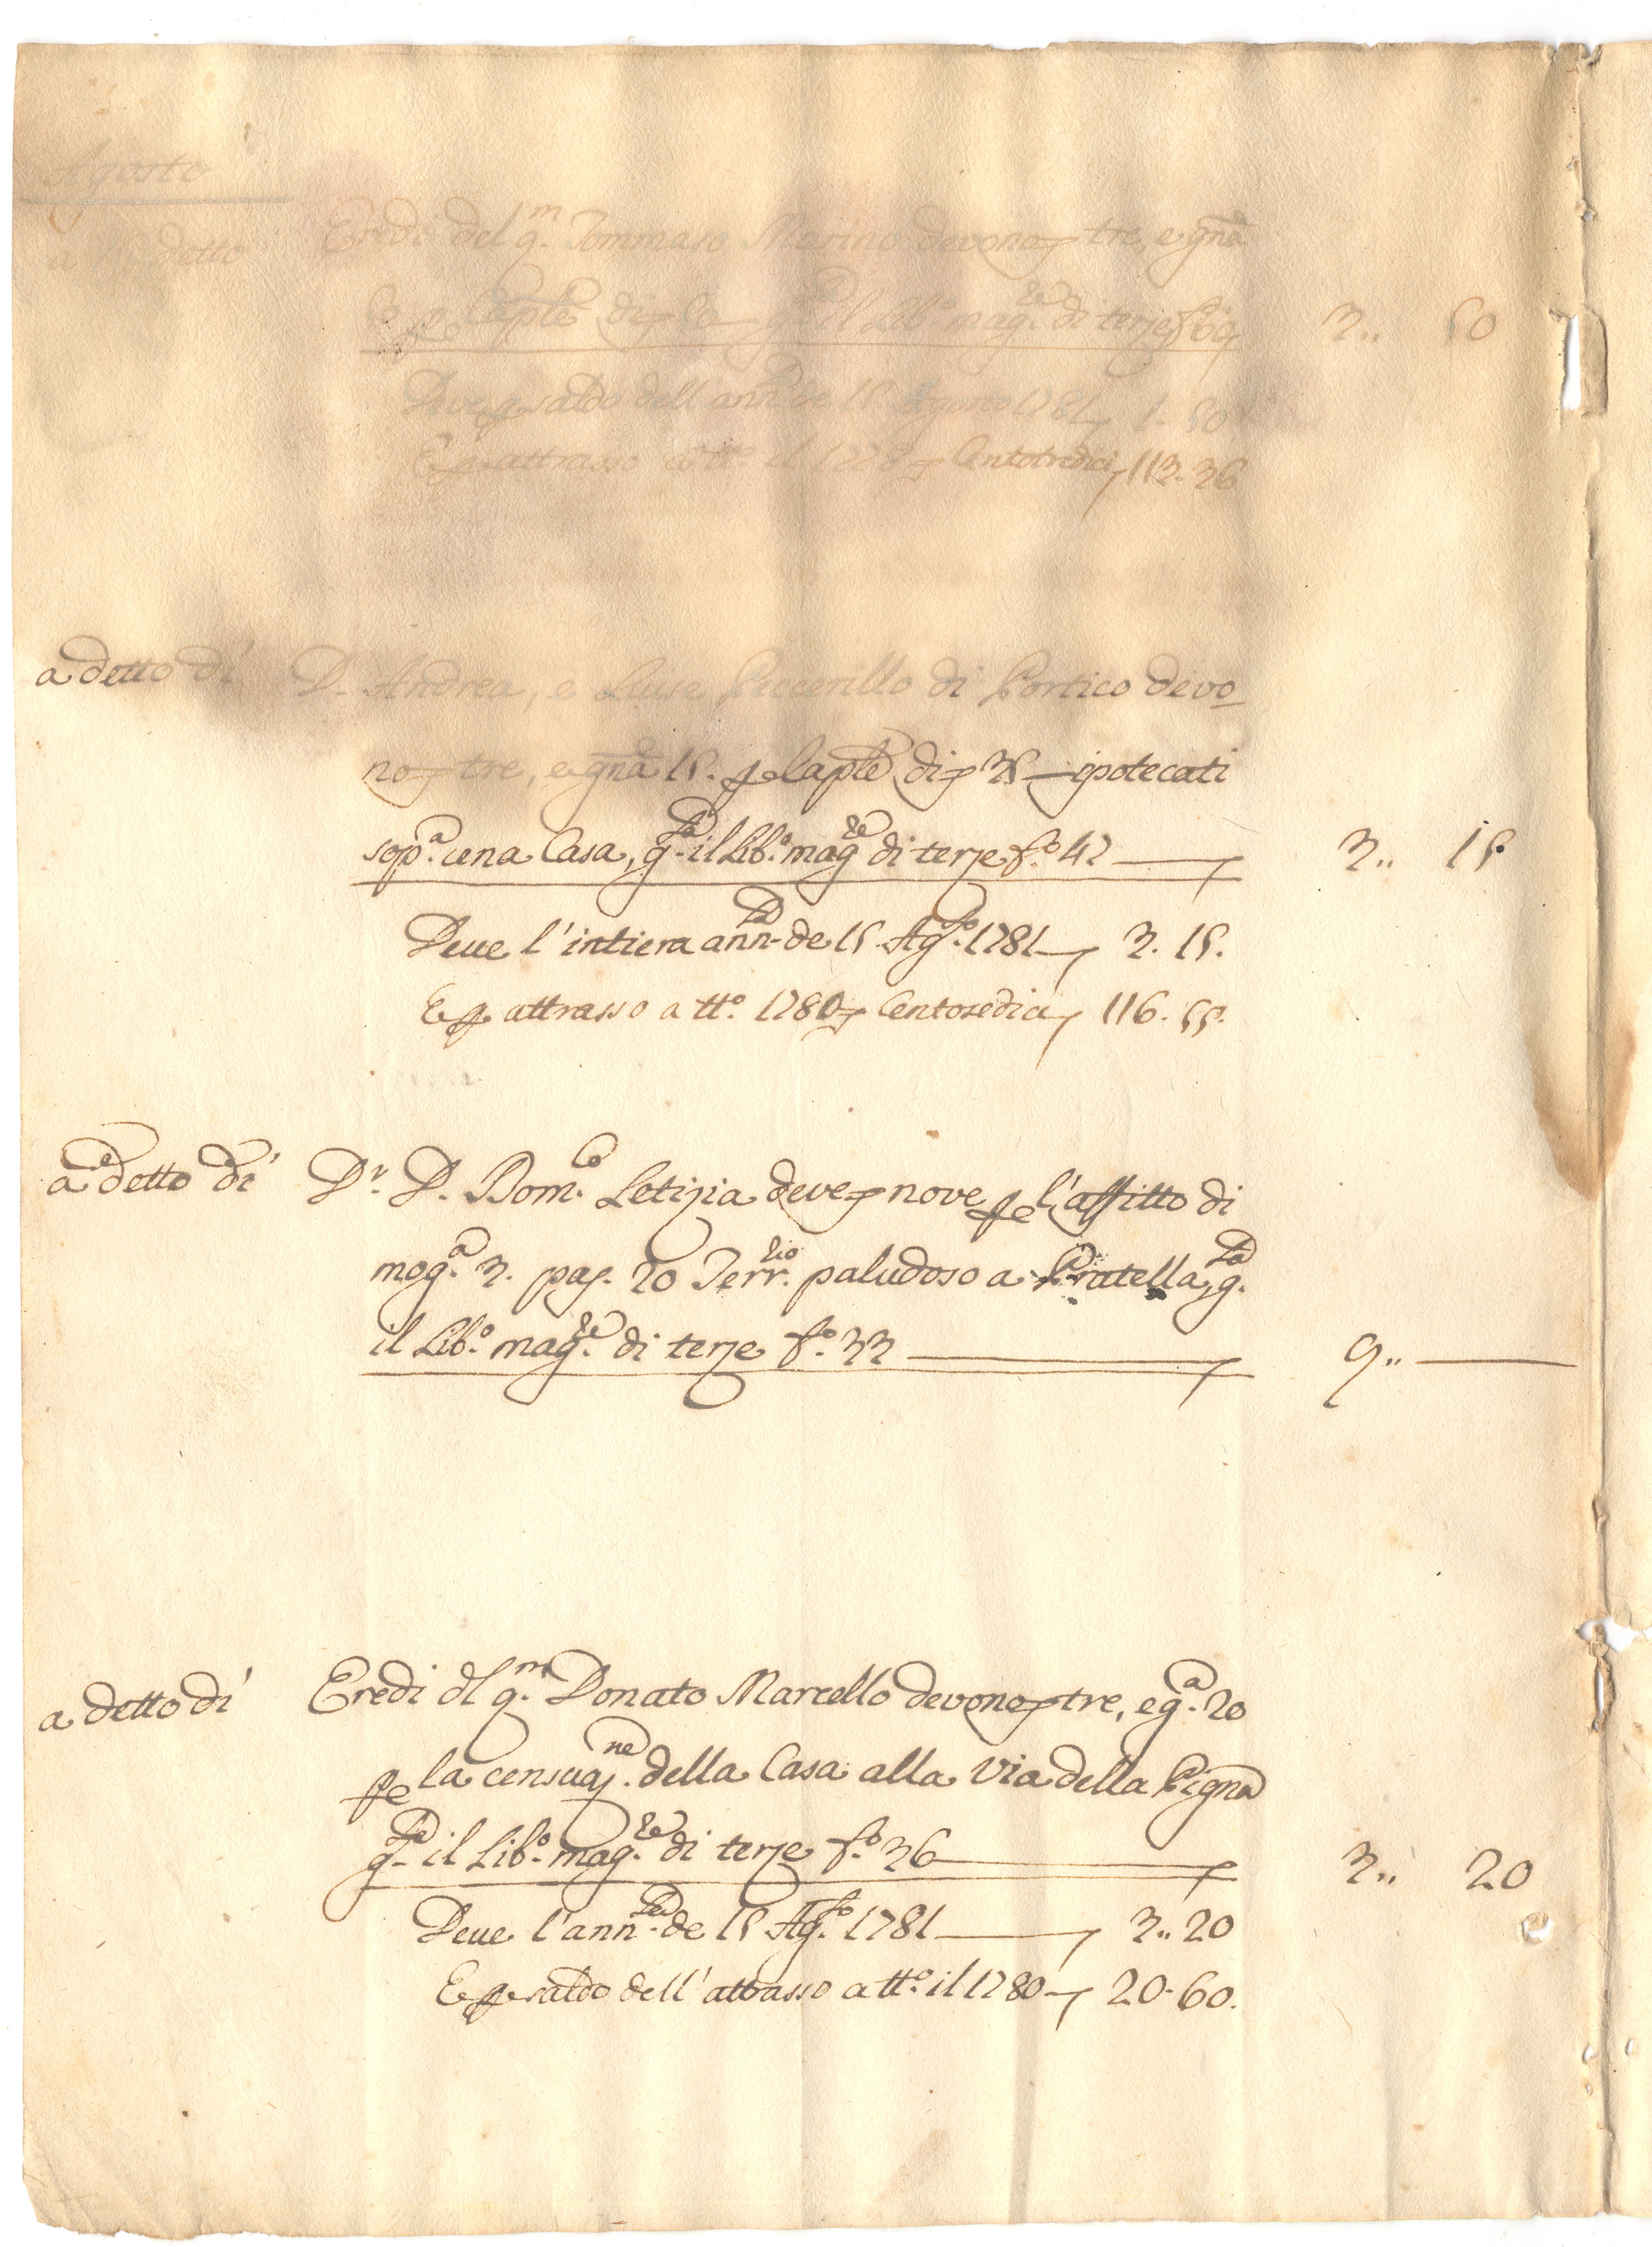 Agosto
a 15 detto Eredi del q.m Tommaso Marino devono tre, e gna
50 pe caple di 50 q.ta il Lib.o mag.re di terze f.o 69 3.. 50
Deve p saldo dell'ann.ta de 15 Agosto 1781 1. 50
E p attrasso a tt.o il 1778 Centotredici 113. 36
a detto dì D. Andrea, e Luise Peccerillo di Portico devo
no tre, e gna 15. pe caple di 35 ipotecati
sop.a una Casa, q.ta il Lib.o mag.re di terze f.o 42 3.. 15
Deve l'intiera ann.ta de 15 Ag.to 1781 3. 15.
E p attrasso a tt.o 1780 Centosedici 116. 55.
a detto dì D.r D. Dom.co Letizia deve nove pe l'affitto di
mog.a 3. pas. 20 Terr.rio paludoso a Pratella, q.ta
il Lib.o mag.re di terze f.o 33 9..
a detto dì Eredi dl q.m Donato Marcello devono tre, e g.a 20
pe la censuaz.ne della Casa alla Via della Pigna
q.ta il Lib.o mag.re di terze f.o 36 3.. 20
Deve l'ann.ta de 15 Ag.to 1781 3.. 20
E p saldo dell'attrasso a tt.o il 1780 20. 60.